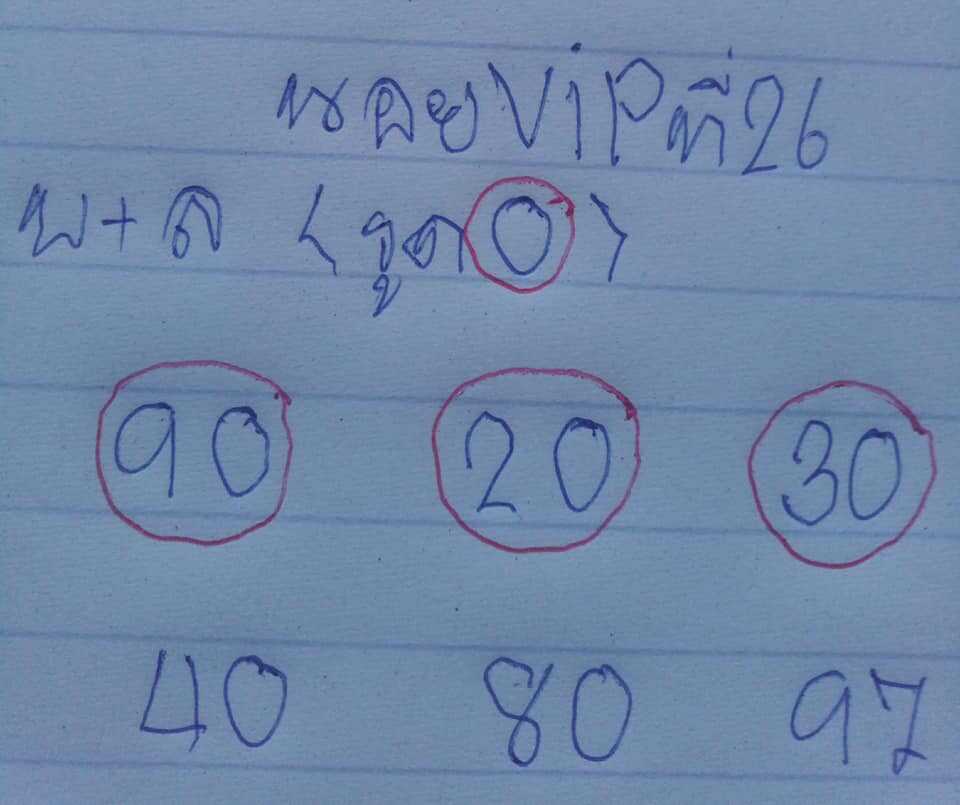 หอยVIPที่26
บ+ล (รูด0)
90 20 30
40 80 97